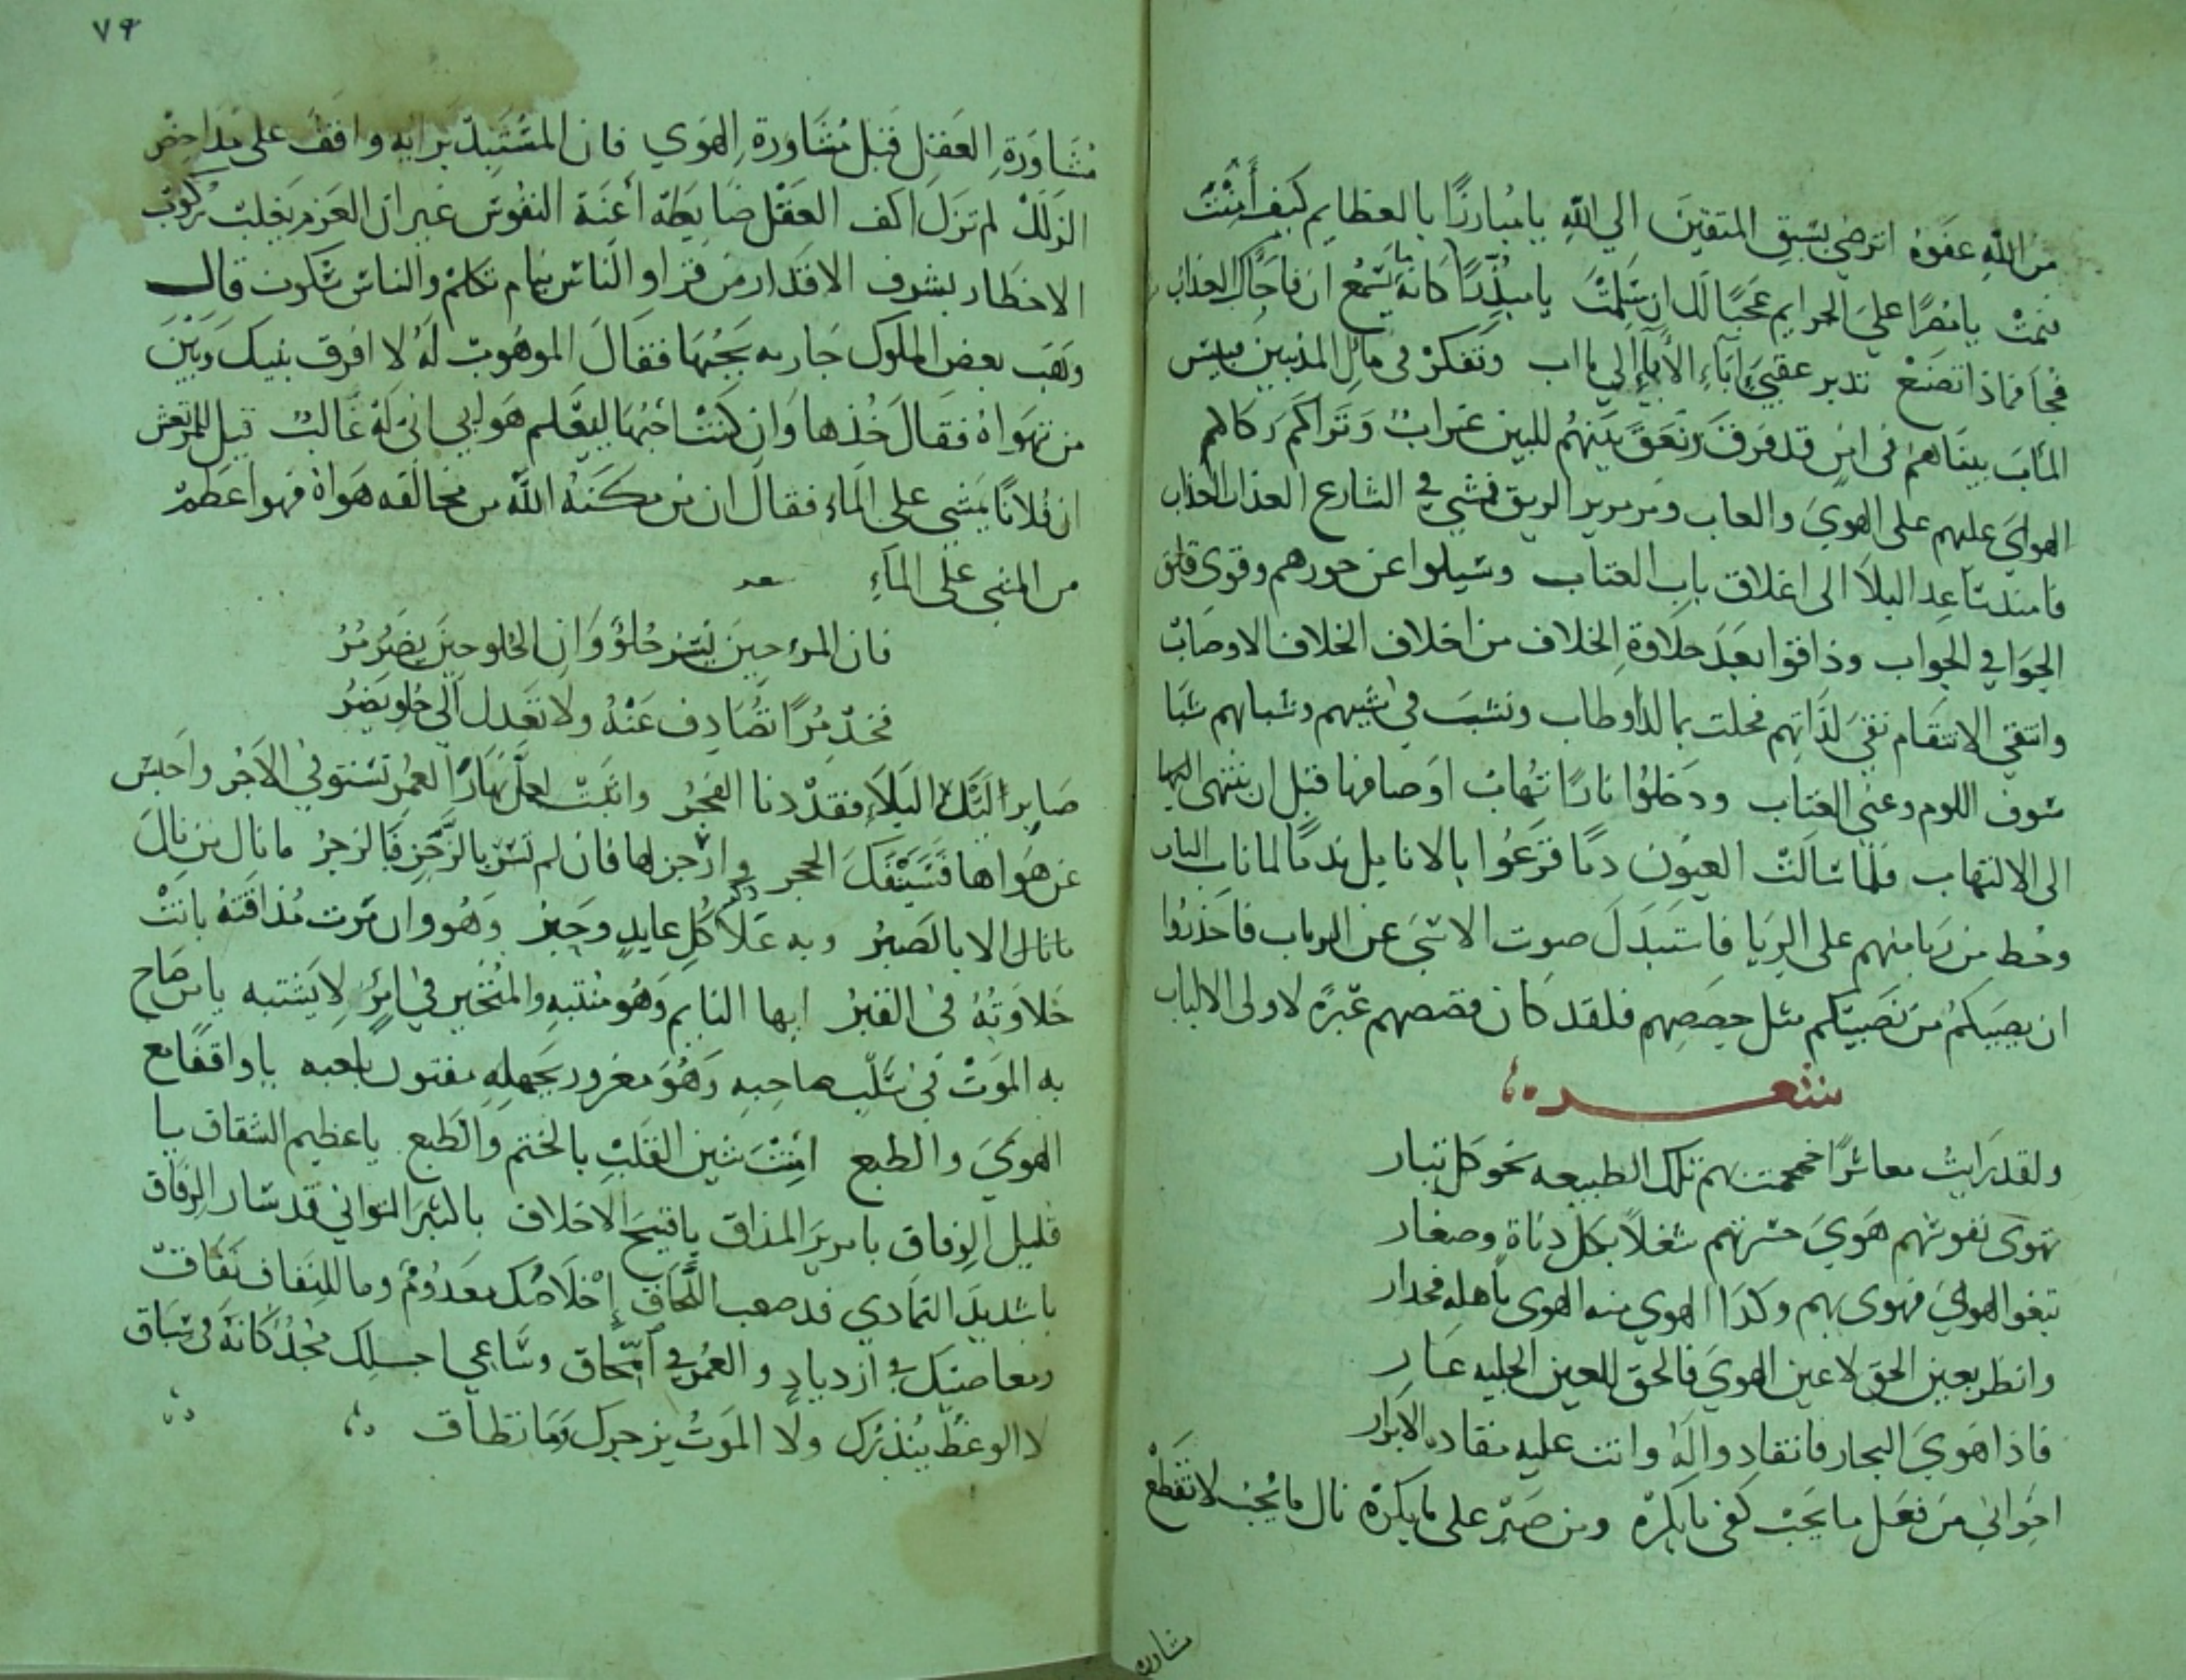 من الله عفوه اترضي بسبق المتقين الي الله يا مبارزًا بالعظايم كيف أمنت
فنمت يا مصرًا على الجرايم عجبًا لك ان سلمت يا مبذرًا كانه يا يسمع ان فاجاك العذاب
فجأ فماذا تصنع تدبر عقبي اباء الأباء الي ما اب وتفكر في مآل المذنبين فبيس
المآب بيناهم في امن قد فرق ونعق بينهم للبين غراب وتراكم ركام
الهوي عليهم على الهوي والعاب ومر مرير الريق فمشي في الشارع العذاب العذاب
فامتد ساعد البلا الى اغلاق باب العتاب وسيلوا عن جورهم وقوي قلق
الجوا في الجواب وذاقوا بعد حلاوة الخلاف من اخلاف الخلاف الاوصاب
وانتقي الانتقام نقي لذاتهم فحلت بما لذ وطاب ونشب في شيبهم وشبابهم شبا
سوف اللوم وعنى العتاب ودخلوا نارًا تهاب اوصافها قبل ان ينتهي اليها
الى الالتهاب فلما سالت العيون دمًا قرعوا بالانامل ندمًا لما ناب الناب
وحط من ربا منهم على الربا فاستبدل صوت الاسى عن الرباب فاحذروا
ان يصيبكم من نصيبكم مثل حصصهم فلقد كان قصصهم عبرة لاولى الالباب
شعـــر
ولقد رايت معاشرًا جمحت بهم تلك الطبيعه نحو كل تبار
تهوى نفوسهم هوي حسراتهم شغلًا بكل دناة وصغار
تبعوا الهوي فهوى بهم وكذا الهوي منه الهوى باهله فحذار
وانظر بعين الحق لا عين الهوي فالحق للعين الجليه عار
فاذا هوي الفجار فانقاد واله وابت عليه مقاده الابرار
اخواني من فعل ما يحب كفى ما يكره ومن صبر على ما يكره نال ما يحب لا تقطع
مشاورة
٧٩
مشاورة العقل قبل مشاورة الهوي فان المستبد برايه واقف على مداحض
الزلل لم تزل اكف العقل ضابطه أعنة النفوس غير ان العزم يغلب ركوب
الاخطار بشرف الاقدار من قرا والناس نيام تكلم والناس سكوت قال
وهب بعض الملوك جاريه يحبها فقال الموهوب له لا افرق بينك وبين
من تهواه فقال خذها وان كنت احبها ليعلم هوايي اني له غالب قيل للمرتعش
ان فلانًا يمشي على الماء فقال ان من مكنه الله من مخالفه هواه فهو اعظم
من المشي على الماء شعر
فان المرء حين يسر حلو وان الحلو حين يضر مر
فخذ مرًا تصادف عنه ولا تعدل الى حلو يضر
صابر ليل البلاء فقد دنا الفجر واثبت لعل نهار العمر تستوفي الاجر واحبس
عن هواها فسينفك الحجر وارجز لها فان لم تسر بالرجز فالزجر ما نال من نال
ما نال الا بالصبر وبه علا ذكر كل عابد وحبر وهو وان مرت مذاقته بانت
حلاوته في القبر ايها النايم وهو منتبه والمتحير في امر لا يشتبه يا من صاح
به الموت في سلب صاحبه وهو مغرور بجهله مفتون بلعبه يا واقفًا مع
الهوي والطبع امنت شين القلب بالختم والطبع يا عظيم الشقاق يا
قليل الوفاق يا مرير المذاق يا قبيح الاخلاق يا كثير التواني قد سار الرفاق
يا شديد التمادي قد صعب اللحاق إخلاصك معدوم وما للنفاق نفاق
ومعاصيك في ازدياد والعمر في امحاق وساعي اجلك مجد كانه في سباق
لا الوعظ ينذرك ولا الموت يزجرك وما تطاق